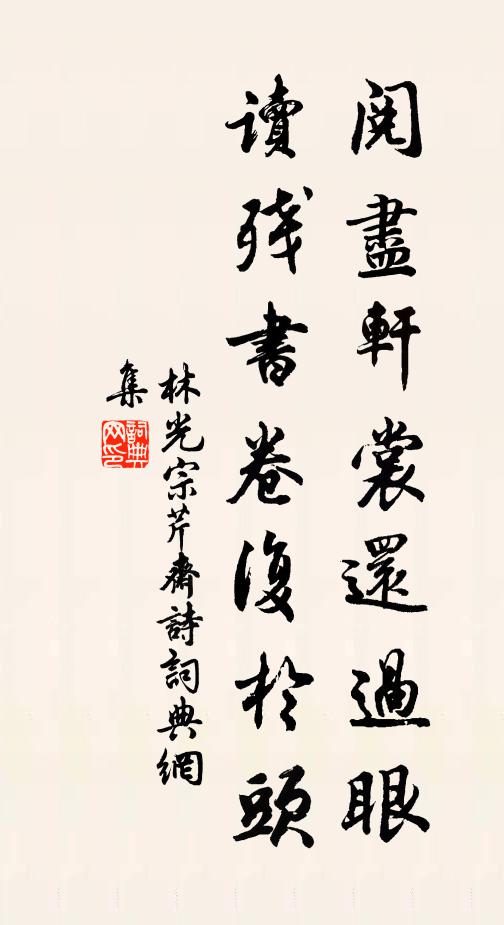 閱盡軒裳還過眼
讀殘書卷復於頭
林光宗芹齋詩詞典網
集
詞典网印